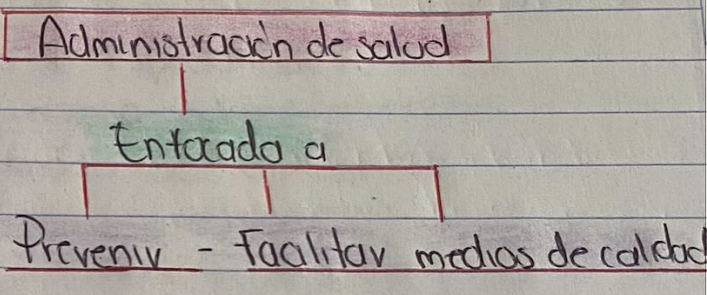 Administración de salud
Enfocado a
Prevenir - Facilitar medios de calidad